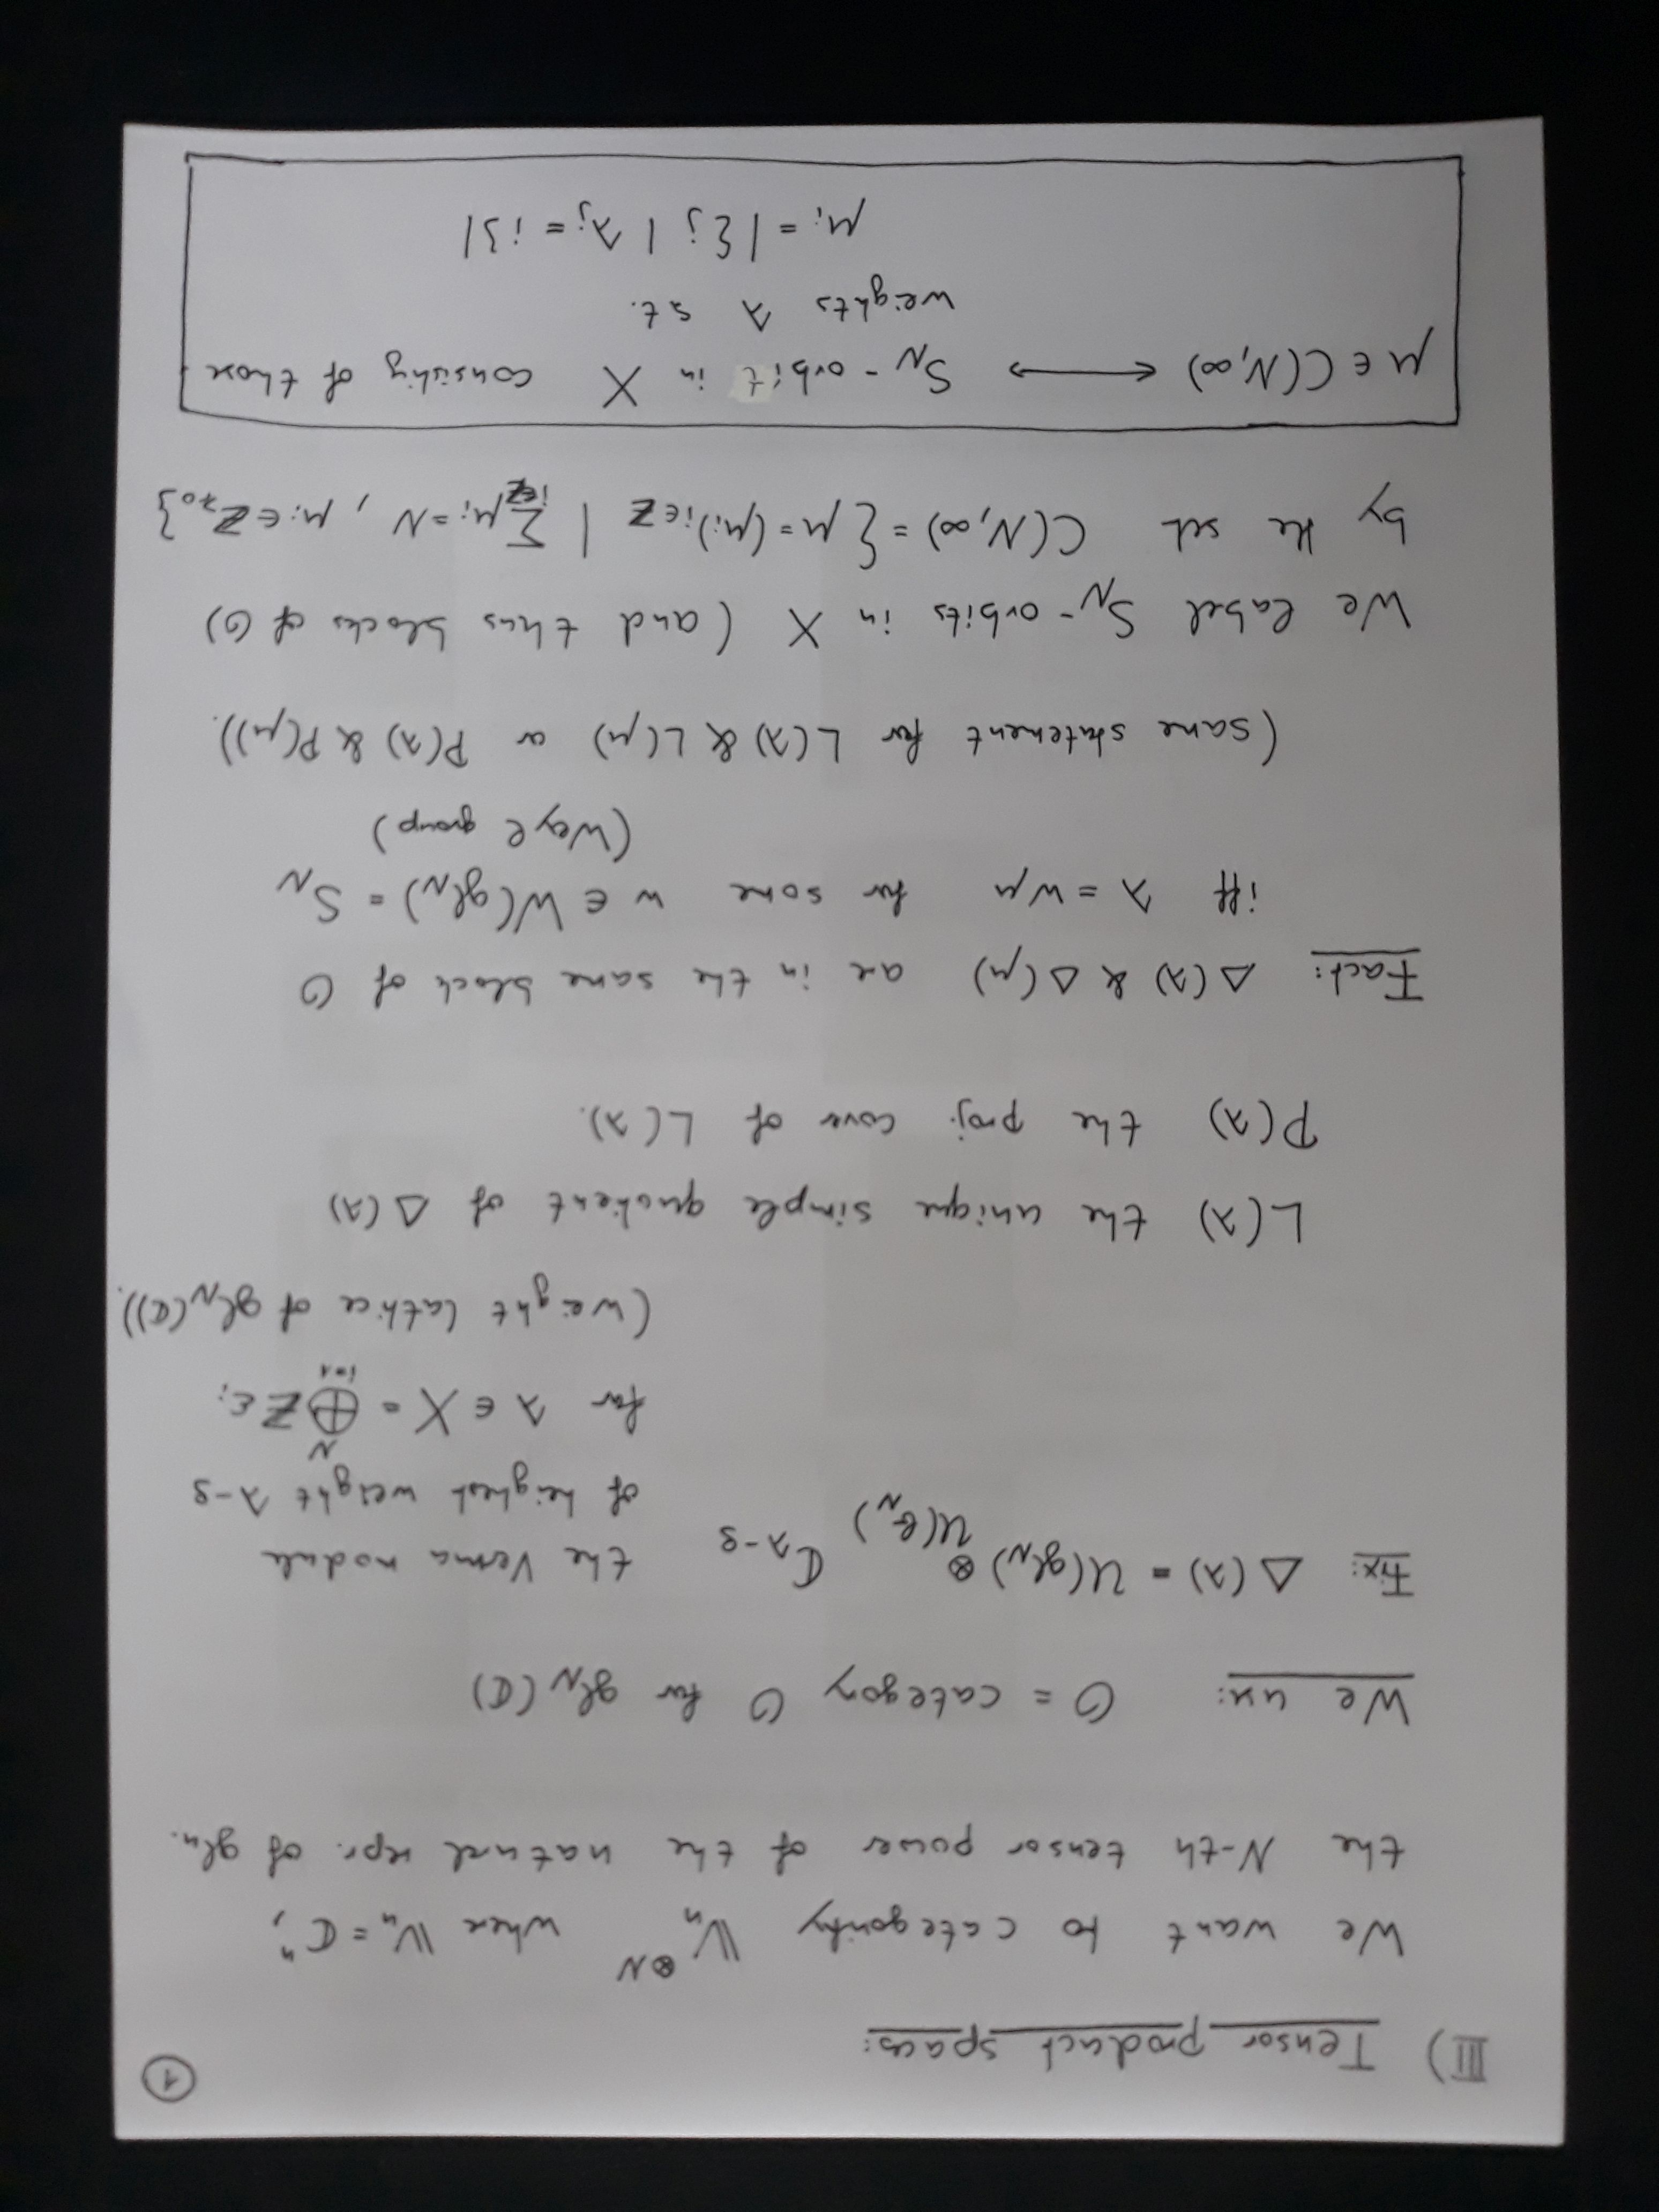 ①
III) Tensor product spaces:
We want to categorify 𝕍ₙ^{⊗N} where 𝕍ₙ = ℂⁿ,
the N-th tensor power of the natural repr. of glₙ.
We use: O = category O for gl_N(ℂ)
Fix: Δ(λ) = U(gl_N) ⊗_{U(b_N)} ℂ_{λ-ρ} the Verma module
of heighest weight λ-ρ
for λ ∈ X = ⊕_{i=1}^{N} ℤ ε_i
(weight lattice of gl_N(ℂ)).
L(λ) the unique simple quotient of Δ(λ)
P(λ) the proj. cover of L(λ).
Fact: Δ(λ) & Δ(μ) are in the same block of O
iff λ = wμ for some w ∈ W(gl_N) = S_N
(Weyl group)
(same statement for L(λ) & L(μ) or P(λ) & P(μ)).
We label S_N-orbits in X (and thus blocks of O)
by the set C(N,∞) = { μ = (μ_i)_{i∈ℤ} | Σ_{i∈ℤ} μ_i = N , μ_i ∈ ℤ_{≥0} }
μ ∈ C(N,∞) ⟷ S_N-orbit in X consisting of those
weights λ s.t.
μ_i = |{j | λ_j = i}|